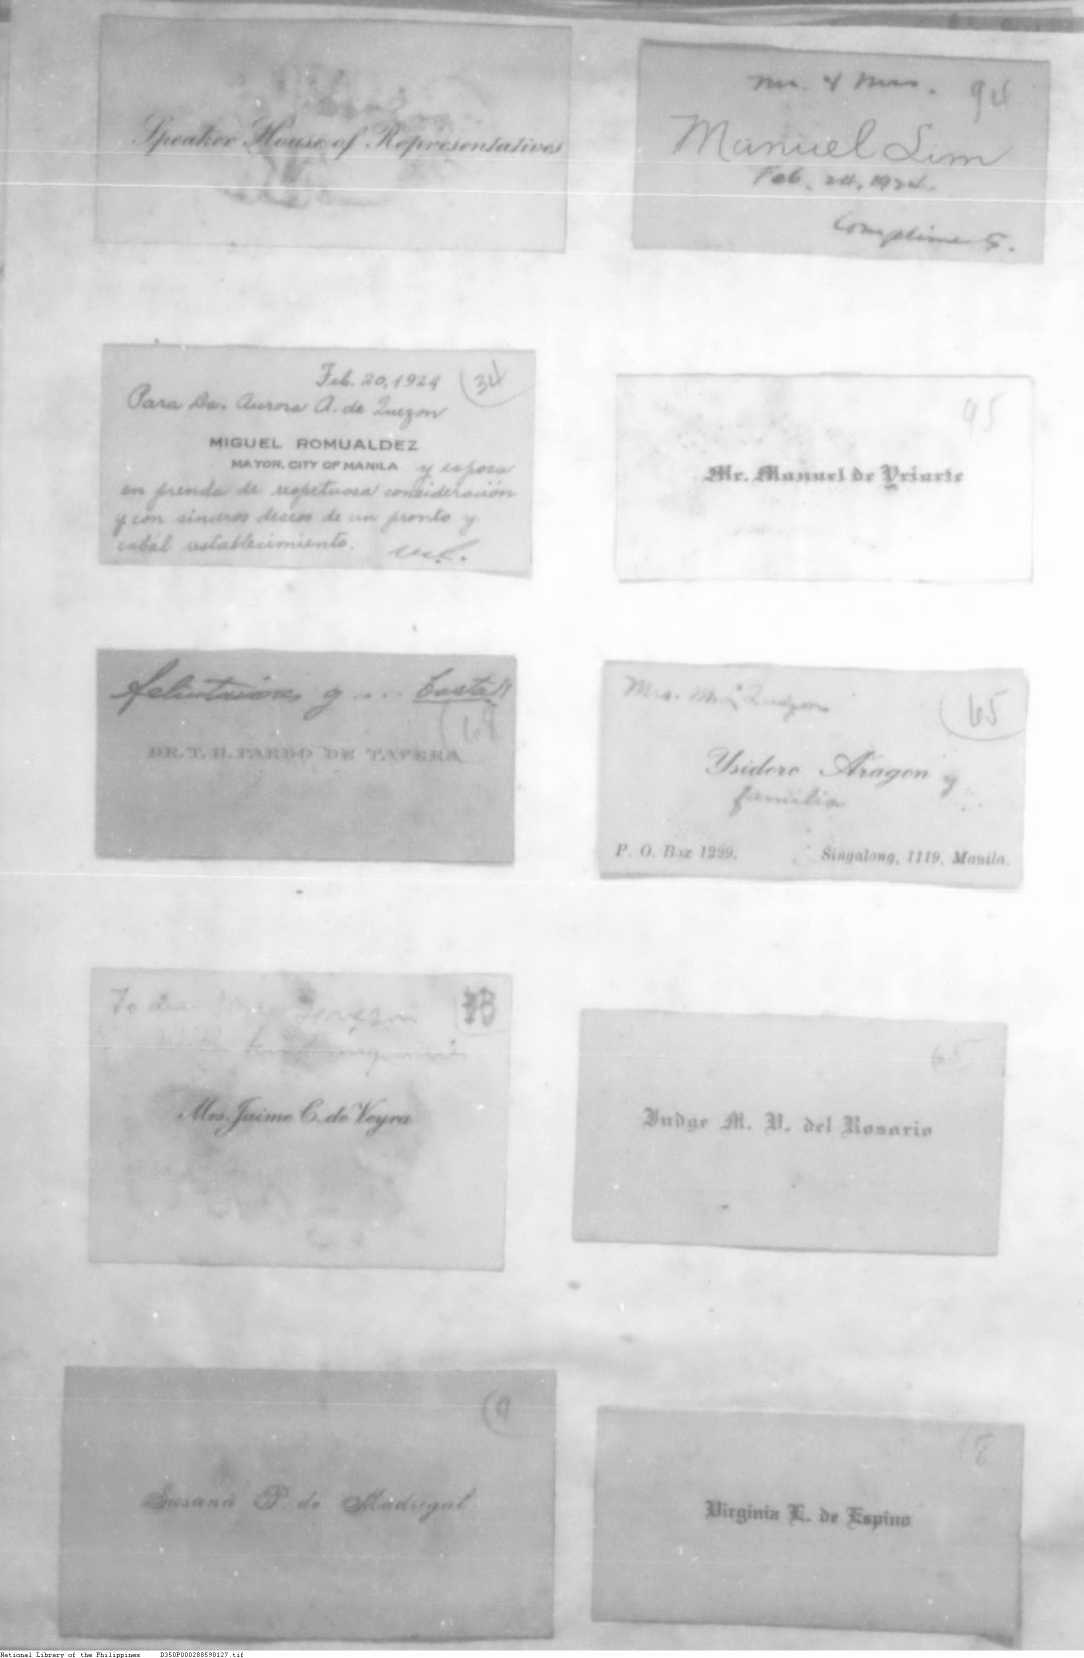 Speaker House of Representatives
Mr. & Mrs.
94
Manuel Lim
Feb. 24, 1924.
Feb. 20, 1924
34
Para Da. Aurora A. de Quezon
MIGUEL ROMUALDEZ
MAYOR, CITY OF MANILA y esposa
en prenda de respetuosa consideración
y con sinceros deseos de un pronto y
cabal restablecimiento.
95
Mr. Manuel de Yriarte
y
68
DR. T. H. PARDO DE TAVERA
Mrs. Quezon
65
Ysidoro Aragon y
familia
P. O. Box 1299.
Singalong, 1119, Manila.
To
Quezon
Mrs. Jaime C. de Veyra
65
Judge M. V. del Rosario
9
Susana P. de Madrigal
8
Virginia L. de Espino
National Library of the Philippines
D350P000288598127.tif